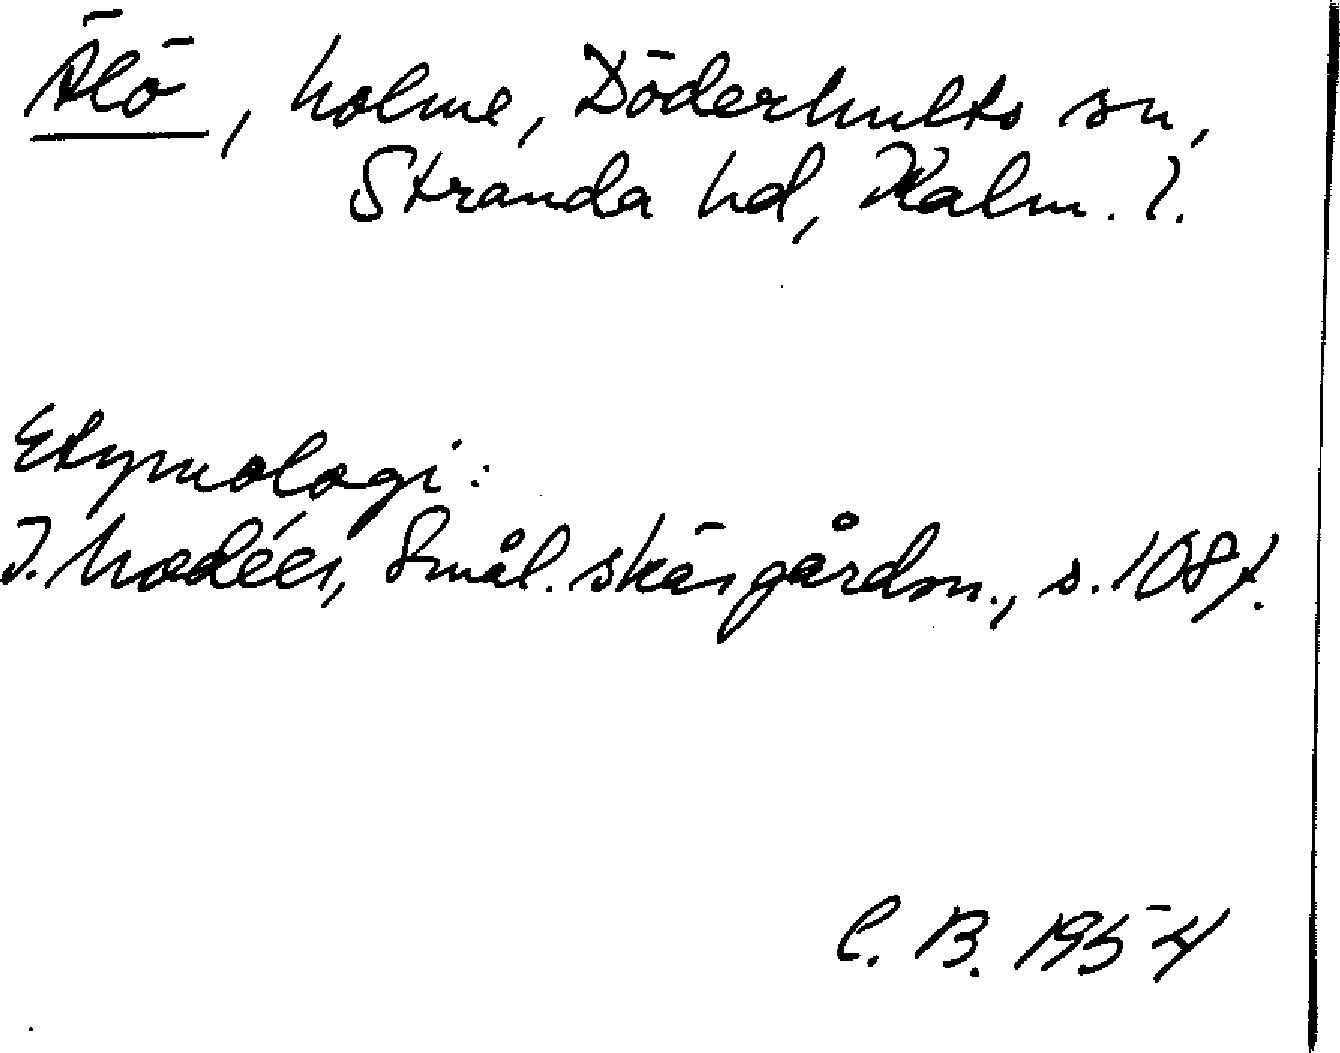 Älö, holme, Döderhults sn,
Stranda hd, Kalm. l.
Etymologi:
I. Modéer, Smål. skärgårdsn., s. 108 f.
C. B. 1954